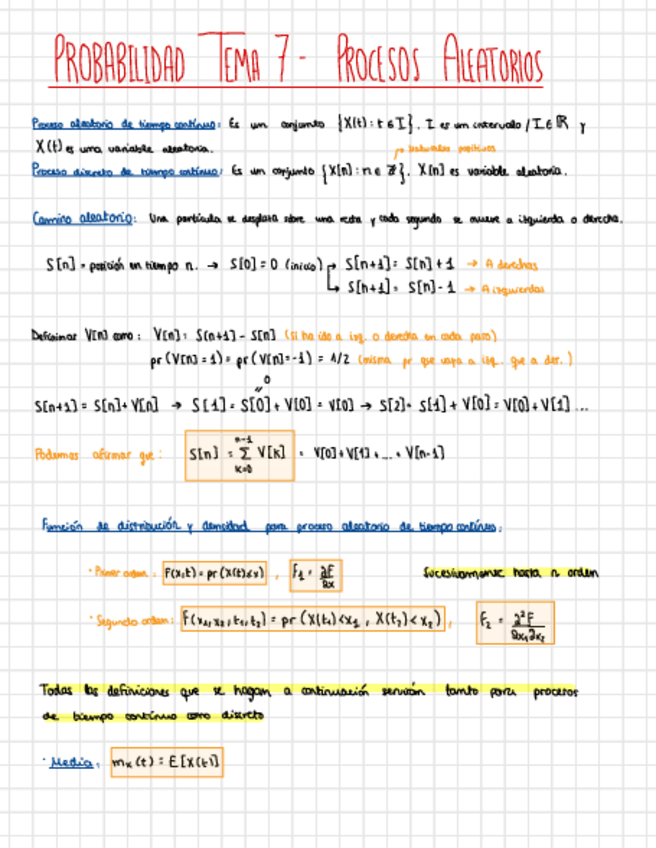 PROBABILIDAD TEMA 7 - PROCESOS ALEATORIOS
Proceso aleatorio de tiempo continuo: Es un conjunto {X(t): t ∈ I}. I es un intervalo / I ∈ ℝ y
X(t) es una variable aleatoria.
→ naturales positivos
Proceso discreto de tiempo continuo: Es un conjunto {X[n]: n ∈ ℤ}. X[n] es variable aleatoria.
Camino aleatorio: Una partícula se desplaza sobre una recta y cada segundo se mueve a izquierda o derecha.
S[n] = posición en tiempo n. → S[0] = 0 (inicio) → S[n+1] = S[n] + 1 → A derechas
→ S[n+1] = S[n] - 1 → A izquierdas
Definimos V[n] como: V[n] = S[n+1] - S[n] (si ha ido a izq. o derecha en cada paso)
pr(V[n] = 1) = pr(V[n] = -1) = 1/2 (misma pr que vaya a izq. que a der.)
0
S[n+1] = S[n] + V[n] → S[1] = S[0] + V[0] = V[0] → S[2] = S[1] + V[0] = V[0] + V[1] ...
Podemos afirmar que: S[n] = Σ_{k=0}^{n-1} V[k] = V[0] + V[1] + ... + V[n-1]
Función de distribución y densidad para proceso aleatorio de tiempo continuo:
· Primer orden: F(x,t) = pr(X(t) ≤ x), f₁ = ∂F/∂x Sucesivamente hasta n orden
· Segundo orden: F(x₁,x₂,t₁,t₂) = pr(X(t₁) < x₁, X(t₂) < x₂), f₂ = ∂²F/∂x₁∂x₂
Todas las definiciones que se hagan a continuación servirán tanto para procesos
de tiempo continuo como discreto
· Media: mₓ(t) = E[X(t)]